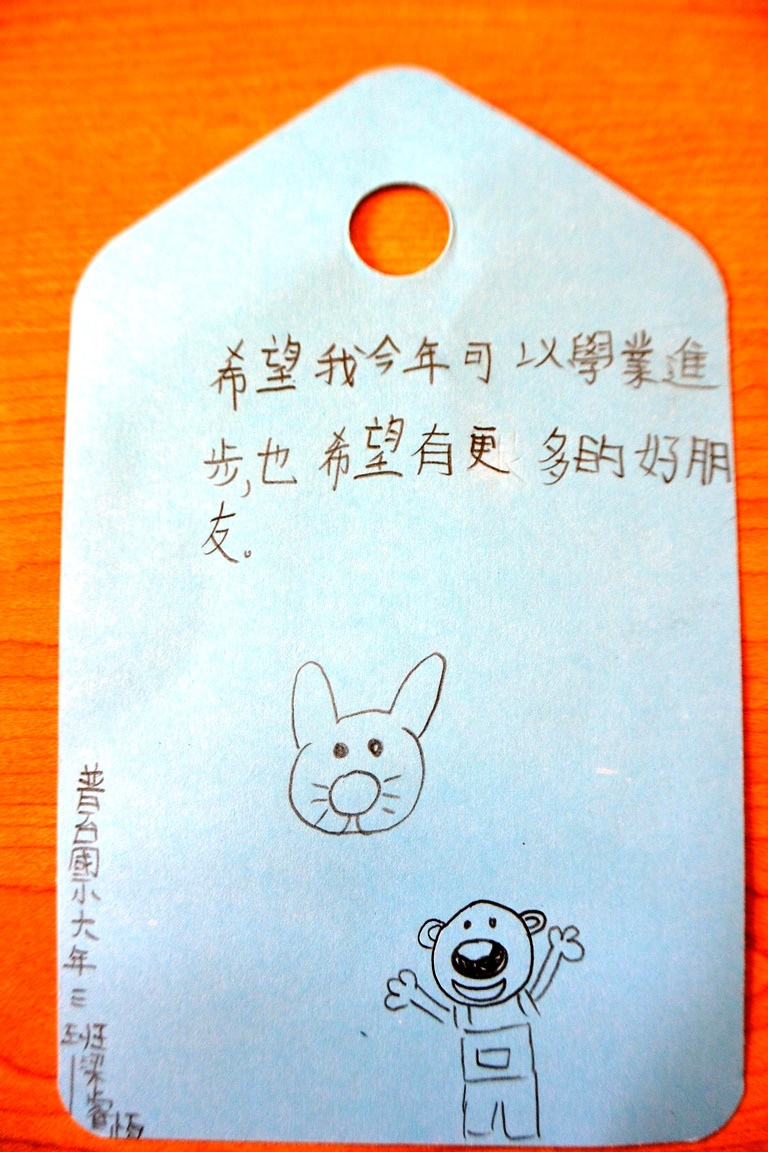 希望我今年可以學業進
步,也希望有更多的好朋
友。
普台國小六年三班梁睿恆